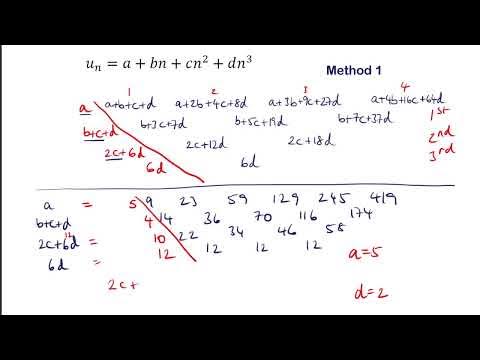 uₙ = a + bn + cn² + dn³
Method 1
1 2 3 4
a a+b+c+d a+2b+4c+8d a+3b+9c+27d a+4b+16c+64d
1st
b+c+d b+3c+7d b+5c+19d b+7c+37d
2nd
2c+6d 2c+12d 2c+18d
3rd
6d 6d
a = 5 9 23 59 129 245 419
b+c+d = 4 14 36 70 116 174
2c+6d = 10 22 34 46 58
12
6d = 12 12 12 12
a=5
2c+
d=2